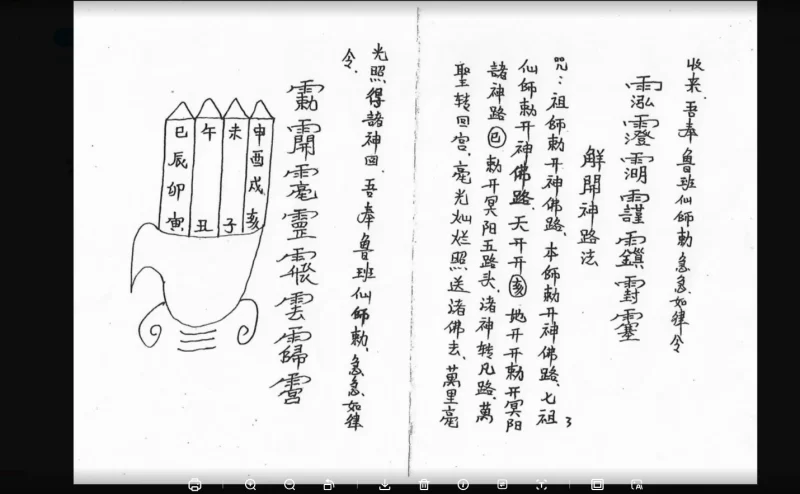 收来、吾奉 魯班仙師勅 急急如律令
解開神路法
咒：祖師勅开神佛路、本師勅开神佛路、七祖
仙師勅开神佛路、天开开亥地开开勅开冥阳
諸神路巳勅开冥阳五路头、渚神转凡路、萬
聖转回宫、毫光灿烂照送渚佛去、萬里毫
3
光照得諸神回、吾奉 魯班仙師勅、急急如律
令、
申酉戌亥
未子
午丑
巳辰卯寅